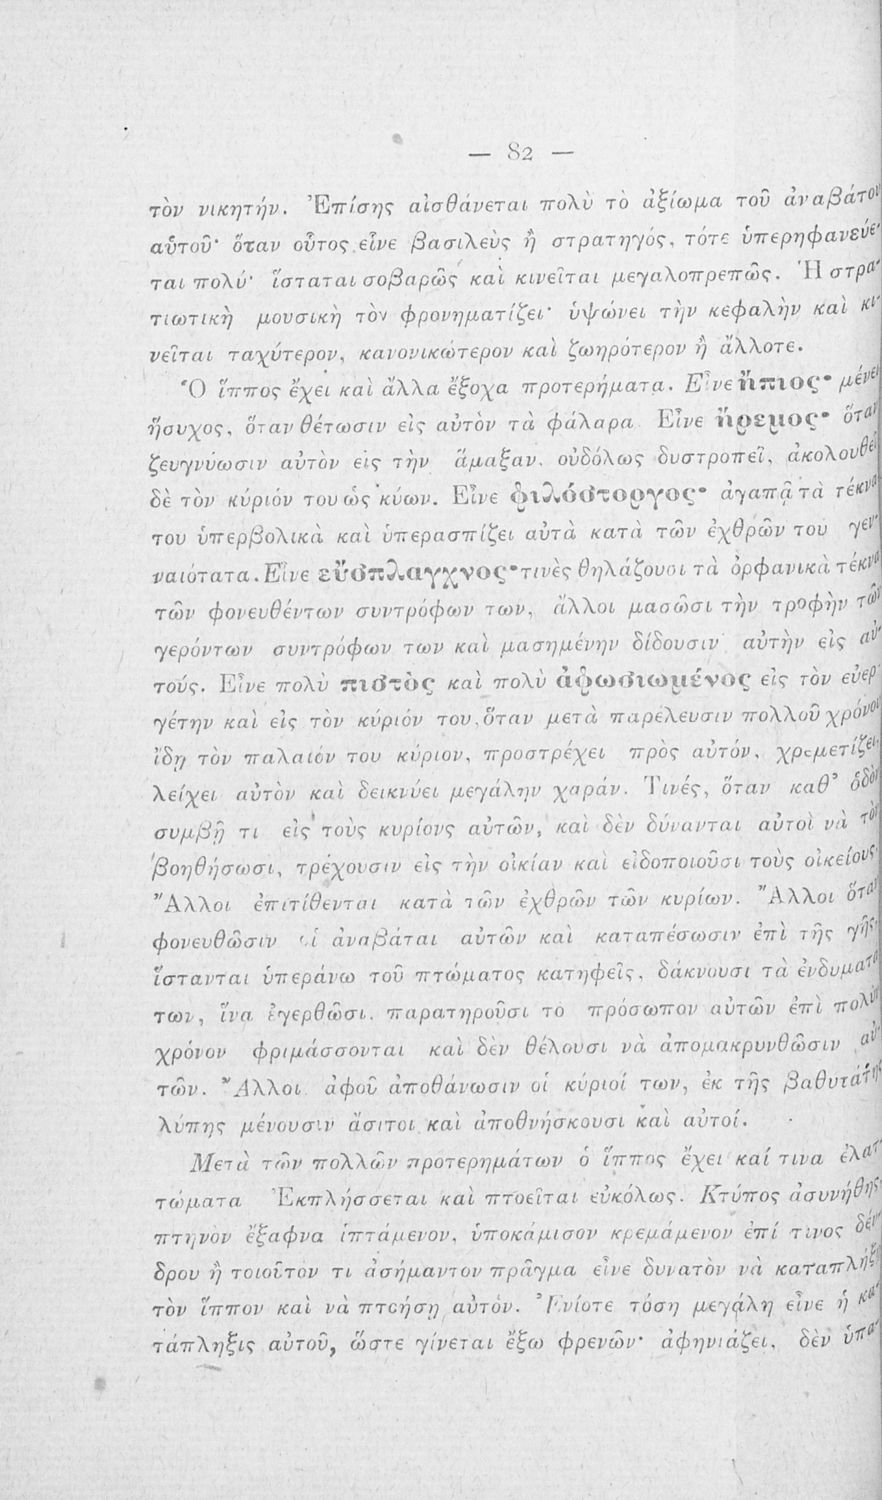 — 82 —
τὸν νικητήν. Ἐπίσης αἰσθάνεται πολὺ τὸ ἀξίωμα τοῦ ἀναβάτου
αὑτοῦ· ὅταν οὗτος εἶνε βασιλεὺς ἢ στρατηγός, τότε ὑπερηφανεύε-
ται πολύ· ἵσταται σοβαρῶς καὶ κινεῖται μεγαλοπρεπῶς. Ἡ στρα-
τιωτικὴ μουσικὴ τὸν φρονηματίζει· ὑψώνει τὴν κεφαλὴν καὶ κι-
νεῖται ταχύτερον, κανονικώτερον καὶ ζωηρότερον ἢ ἄλλοτε.
Ὁ ἵππος ἔχει καὶ ἄλλα ἔξοχα προτερήματα. Εἶνε ἤπιος· μένει
ἥσυχος, ὅταν θέτωσιν εἰς αὐτὸν τὰ φάλαρα Εἶνε ἤρεμος· ὅταν
ζευγνύωσιν αὐτὸν εἰς τὴν ἅμαξαν, οὐδόλως δυστροπεῖ, ἀκολουθεῖ
δὲ τὸν κύριόν του ὡς κύων. Εἶνε φιλόστοργος· ἀγαπᾷ τὰ τέκνα
του ὑπερβολικὰ καὶ ὑπερασπίζει αὐτὰ κατὰ τῶν ἐχθρῶν του γεν-
ναιότατα. Εἶνε εὔσπλαγχνος· τινὲς θηλάζουσι τὰ ὀρφανικὰ τέκνα
τῶν φονευθέντων συντρόφων των, ἄλλοι μασῶσι τὴν τροφὴν τῶν
γερόντων συντρόφων των καὶ μασημένην δίδουσιν αὐτὴν εἰς αὐ-
τούς. Εἶνε πολὺ πιστὸς καὶ πολὺ ἀφωσιωμένος εἰς τὸν εὐερ-
γέτην καὶ εἰς τὸν κύριόν του, ὅταν μετὰ παρέλευσιν πολλοῦ χρόνου
ἴδῃ τὸν παλαιόν του κύριον, προστρέχει πρὸς αὐτόν, χρεμετίζει,
λείχει αὐτὸν καὶ δεικνύει μεγάλην χαράν. Τινές, ὅταν καθ’ ὁδὸν
συμβῇ τι εἰς τοὺς κυρίους αὐτῶν, καὶ δὲν δύνανται αὐτοὶ νὰ τὸν
βοηθήσωσι, τρέχουσιν εἰς τὴν οἰκίαν καὶ εἰδοποιοῦσι τοὺς οἰκείους.
Ἄλλοι ἐπιτίθενται κατὰ τῶν ἐχθρῶν τῶν κυρίων. Ἄλλοι ὅταν
φονευθῶσιν οἱ ἀναβάται αὐτῶν καὶ καταπέσωσιν ἐπὶ τῆς γῆς,
ἵστανται ὑπεράνω τοῦ πτώματος κατηφεῖς, δάκνουσι τὰ ἐνδυματά
των, ἵνα ἐγερθῶσι, παρατηροῦσι το πρόσωπον αὐτῶν ἐπὶ πολὺν
χρόνον φριμάσσονται καὶ δὲν θέλουσι νὰ ἀπομακρυνθῶσιν αὐ-
τῶν. Ἄλλοι ἀφοῦ ἀποθάνωσιν οἱ κύριοί των, ἐκ τῆς βαθυτάτης
λύπης μένουσιν ἄσιτοι καὶ ἀποθνήσκουσι καὶ αὐτοί.
Μετὰ τῶν πολλῶν προτερημάτων ὁ ἵππος ἔχει καί τινα ἐλατ-
τώματα Ἐκπλήσσεται καὶ πτοεῖται εὐκόλως. Κτύπος ἀσυνήθης,
πτηνὸν ἔξαφνα ἱπτάμενον, ὑποκάμισον κρεμάμενον ἐπί τινος δέν-
δρου ἢ τοιοῦτόν τι ἀσήμαντον πρᾶγμα εἶνε δυνατὸν νὰ καταπλήξῃ
τὸν ἵππον καὶ νὰ πτοήσῃ αὐτόν. Ἐνίοτε τόση μεγάλη εἶνε ἡ κα-
τάπληξις αὐτοῦ, ὥστε γίνεται ἔξω φρενῶν· ἀφηνιάζει, δὲν ὑπα-